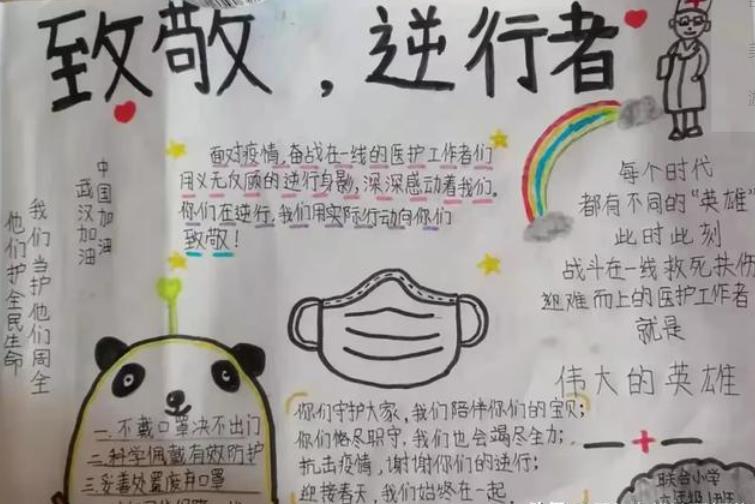 致敬，逆行者
面对疫情,奋战在一线的医护工作者们
用义无反顾的逆行身影,深深感动着我们。
你们在逆行,我们用实际行动向你们
致敬！
中国加油
武汉加油
我们当护他们周全
他们护全民生命
每个时代
都有不同的“英雄”
此时此刻
战斗在一线救死扶伤
迎难而上的医护工作者
就是
伟大的英雄
一.不戴口罩决不出门
二.科学佩戴有效防护
三.妥善处置废弃口罩
你们守护大家,我们陪伴你们的宝贝;
你们恪尽职守,我们也会竭尽全力;
抗击疫情,谢谢你们的逆行;
迎接春天,我们始终在一起
联合小学